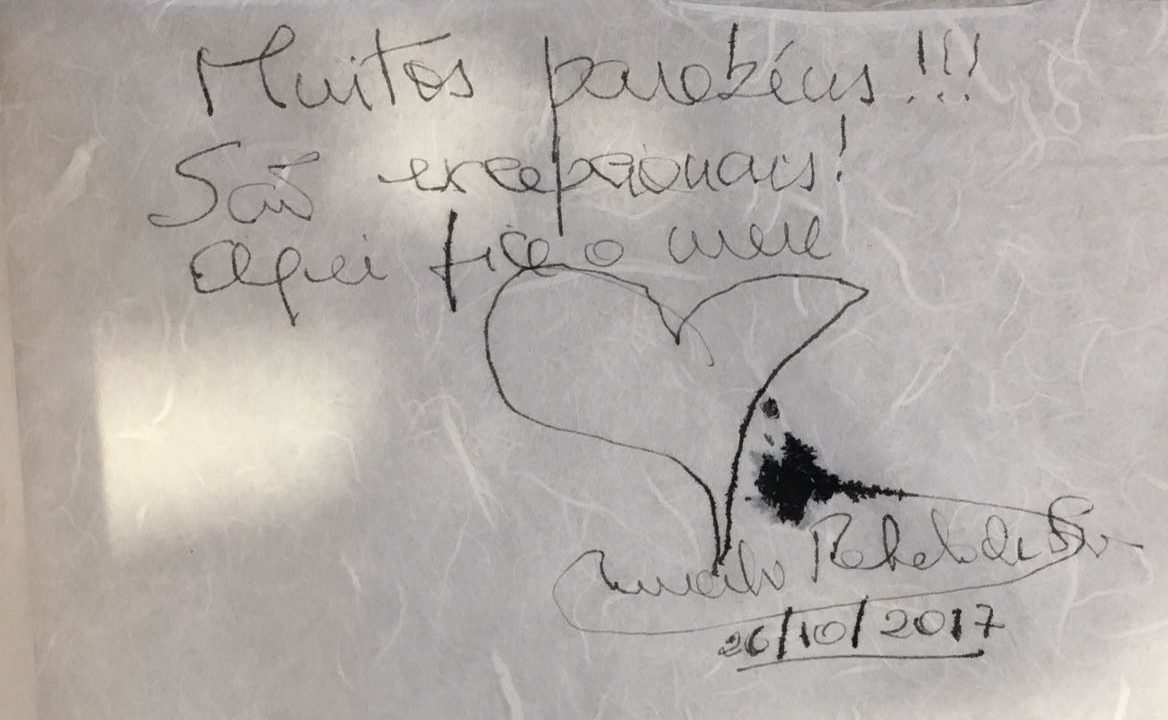 Muitos parabéns!!!
São excepcionais!
Aqui fica o meu
Rebelo de
26/10/2017